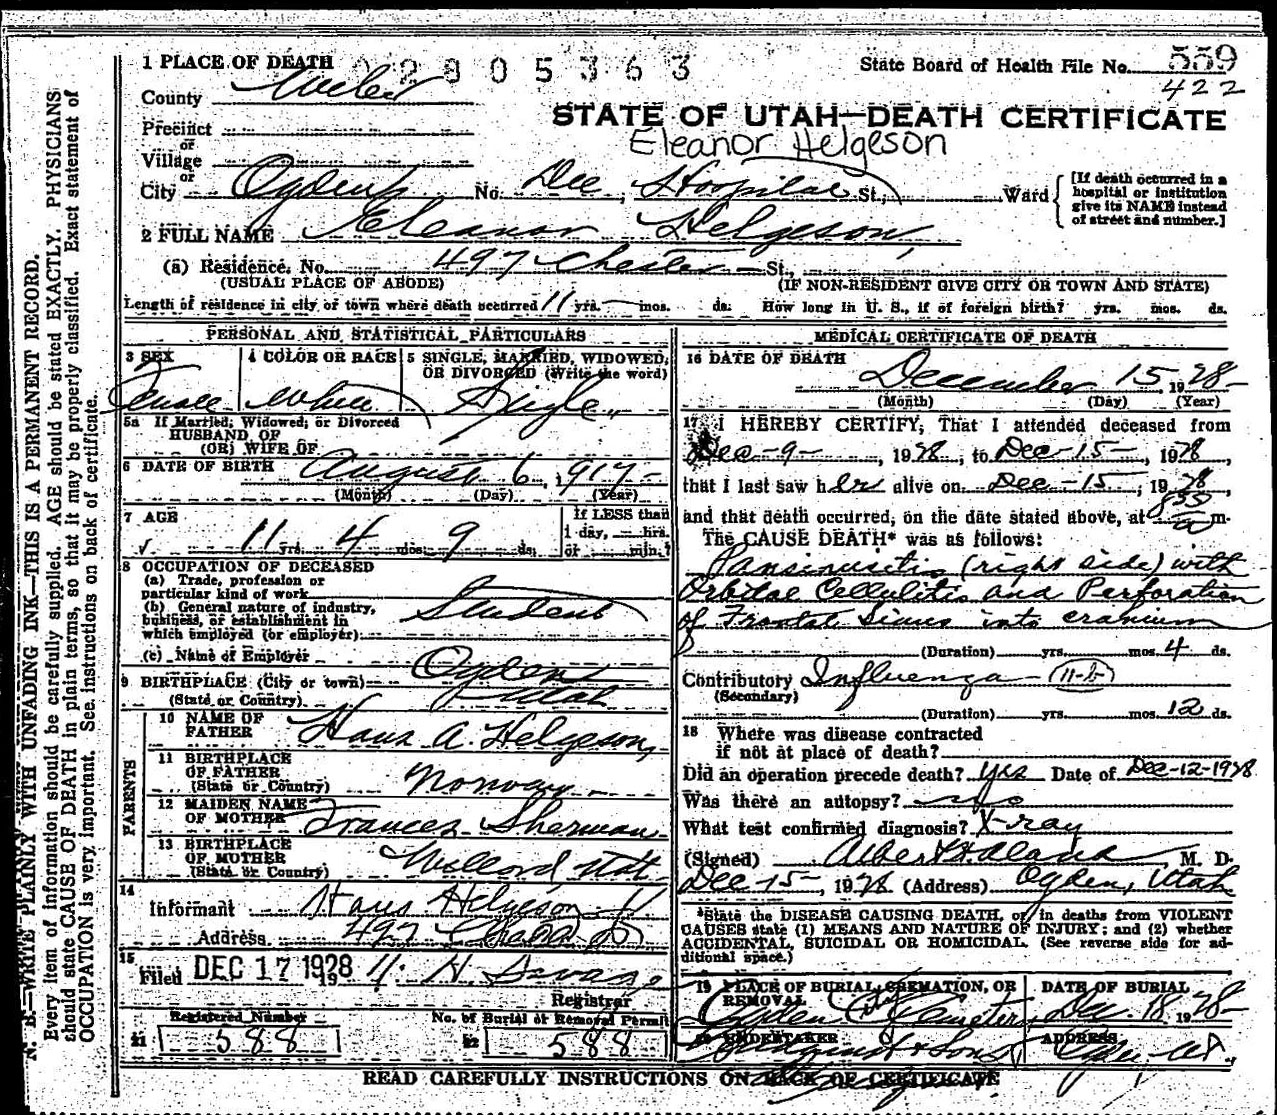 1 PLACE OF DEATH 02805363 State Board of Health File No. 559
County Weber 422
STATE OF UTAH—DEATH CERTIFICATE
Precinct
Eleanor Helgeson
or
Village
or
City Ogden No. Dee Hospital St., Ward
[If death occurred in a hospital or institution give its NAME instead of street and number.]
2 FULL NAME Eleanor Helgeson,
(a) Residence. No. 497 Chester St.,
(USUAL PLACE OF ABODE) (IF NON-RESIDENT GIVE CITY OR TOWN AND STATE)
Length of residence in city or town where death occurred 11 yrs. mos. ds. How long in U. S., if of foreign birth? yrs. mos. ds.
PERSONAL AND STATISTICAL PARTICULARS
3 SEX 4 COLOR OR RACE 5 SINGLE, MARRIED, WIDOWED, OR DIVORCED (Write the word)
Female White Single
5a If Married, Widowed, or Divorced
HUSBAND OF
(OR) WIFE OF
6 DATE OF BIRTH August 6, 1917
(Month) (Day) (Year)
7 AGE If LESS than
1 day, hrs.
11 yrs. 4 mos. 9 ds. or min.?
8 OCCUPATION OF DECEASED
(a) Trade, profession or
particular kind of work
(b) General nature of industry,
business, or establishment in
which employed (or employer) Student
(c) Name of Employer
9 BIRTHPLACE (City or town) Ogden
(State or Country) Utah
PARENTS
10 NAME OF
FATHER Hans A. Helgeson,
11 BIRTHPLACE
OF FATHER
(State or Country) Norway
12 MAIDEN NAME
OF MOTHER Frances Sherman
13 BIRTHPLACE
OF MOTHER
(State or Country) Willard, Utah
14
Informant Hans Helgeson
Address 497
15
Filed DEC 17 1928 H. Savage
Registrar
Registered Number No. of Burial or Removal Permit
21 588 22 588
MEDICAL CERTIFICATE OF DEATH
16 DATE OF DEATH
December 15 1928
(Month) (Day) (Year)
17 I HEREBY CERTIFY, That I attended deceased from
Dec-9-, 1928, to Dec-15-, 1928,
that I last saw her alive on Dec-15-, 1928,
and that death occurred, on the date stated above, at 850 a m.
The CAUSE DEATH* was as follows:
Pansinusitis (right side) with
Orbital Cellulitis and Perforation
of Frontal Sinus into cranium
(Duration) yrs. mos. 4 ds.
Contributory Influenza 11-b
(Secondary)
(Duration) yrs. mos. 12 ds.
18 Where was disease contracted
if not at place of death?
Did an operation precede death? Yes Date of Dec-12-1928
Was there an autopsy? no
What test confirmed diagnosis? X-ray
(Signed) M. D.
Dec 15-, 1928 (Address) Ogden, Utah
*State the DISEASE CAUSING DEATH, or in deaths from VIOLENT
CAUSES state (1) MEANS AND NATURE OF INJURY; and (2) whether
ACCIDENTAL, SUICIDAL OR HOMICIDAL. (See reverse side for ad-
ditional space.)
19 PLACE OF BURIAL, CREMATION, OR DATE OF BURIAL
REMOVAL
Ogden City Cemetery Dec. 18 1928
20 UNDERTAKER ADDRESS
& Sons
READ CAREFULLY INSTRUCTIONS ON BACK OF CERTIFICATE
N. B.—WRITE PLAINLY WITH UNFADING INK—THIS IS A PERMANENT RECORD.
Every item of information should be carefully supplied. AGE should be stated EXACTLY. PHYSICIANS
should state CAUSE OF DEATH in plain terms, so that it may be properly classified. Exact statement of
OCCUPATION is very important. See instructions on back of certificate.